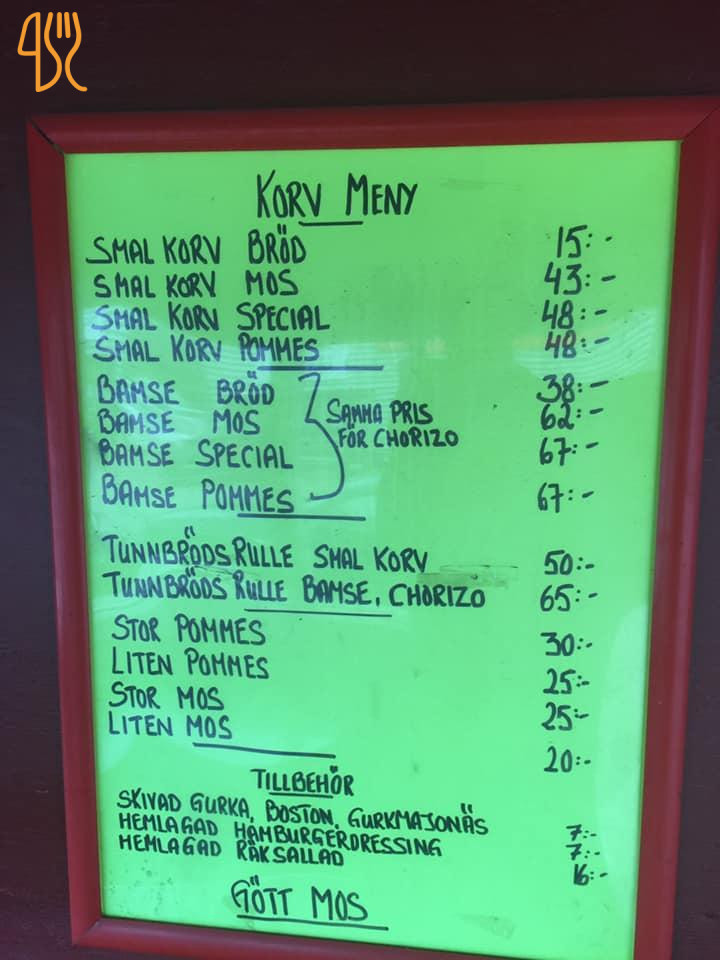 KORV MENY
SMAL KORV BRÖD 15:-
SMAL KORV MOS 43:-
SMAL KORV SPECIAL 48:-
SMAL KORV POMMES 48:-
BAMSE BRÖD 38:-
BAMSE MOS 62:-
SAMMA PRIS
FÖR CHORIZO
BAMSE SPECIAL 67:-
BAMSE POMMES 67:-
TUNNBRÖDSRULLE SMAL KORV 50:-
TUNNBRÖDS RULLE BAMSE, CHORIZO 65:-
STOR POMMES 30:-
LITEN POMMES 25:-
STOR MOS 25:-
LITEN MOS 20:-
TILLBEHÖR
SKIVAD GURKA, BOSTON, GURKMAJONÄS 7:-
HEMLAGAD HAMBURGERDRESSING 7:-
HEMLAGAD RÄKSALLAD 16:-
GÖTT MOS